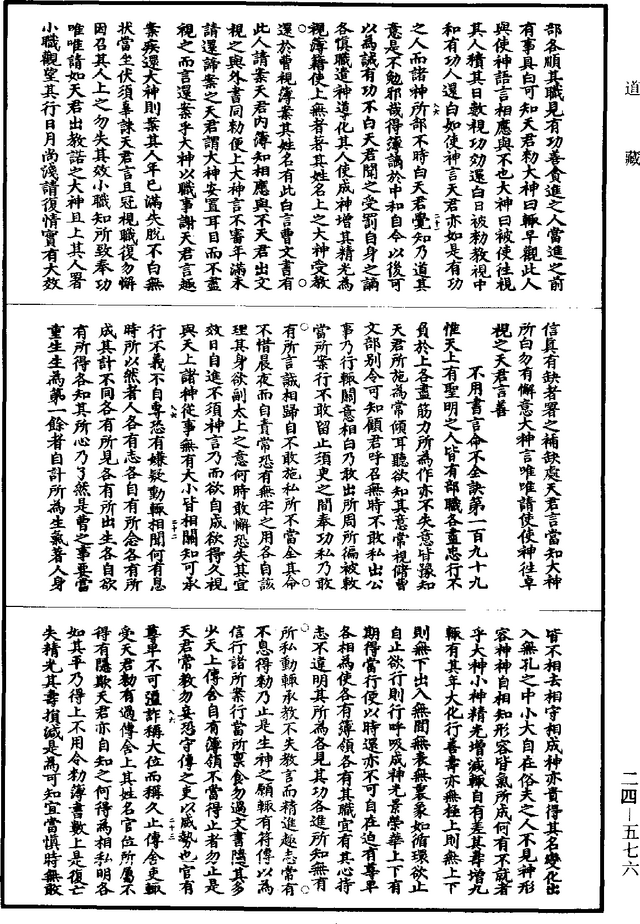 道藏
部各順其職見有功善貪進之人當進之前
有事具白可知天君勑大神曰輙早觀此人
與使神語言相應與不也大神曰被使往視
其人積其日數視功効還白日被勑教視中
和有功人還白如使神言天君亦如是有功
之人而諸神所部不時白天君覺知乃道其
意是不勉邪哉得簿謫於中和自今以後可
以為誡有功不白天君聞之受罰自身之謫
各慎職遣神導化其人使成神增其精光為
視簿籍使上無者著其姓名上之大神受教
還於曹視簿案其姓名有此白言曹文書有
此人請案天君內簿知相應與不天君出文
視之與外書同勑便上大神言不審年滿未
請還諦案之天君謂大神安置耳目而不盡
視之而言還案乎大神以職事謝天君言趣
案疾還大神則案其人年已滿失脫不白無
狀當坐伏須辜誅天君言且冠視職復勿懈
因召其人上之勿失其效小職知所致奉功
唯唯請如天君出教諾之大神且上其人署
小職觀望其行日月尚淺請復情實有大效
信真有缺者署之補缺處天君言當知大神
所白勿有懈意大神言唯唯請使使神往卓
視之天君言善
不用書言命不全訣第一百九十九
惟天上有聖明之人皆有部職各盡忠行不
負於上各盡筋力所為作亦不失意皆豫知
天君所施為常傾耳聽欲知其意常視脩曹
文部別令可知顧君呼召無時不敢私出公
事乃行輙關意相白乃敢出所周所徧被敕
當所案行不敢留止須臾之間奉功私乃敢
有所言誠相歸自不敢施私所不當全其命
不惜晨夜而自責常恐有無牢之用各自該
理其身欲副太上之意何時敢懈恐失其宜
效日自進不須神言乃而欲自成欲得久視
與天上諸神從事無有大小皆相關知可承
行不義不自專恐有嫌疑動輙相聞何有息
時所以然者人各有志各自有所念各有所
成其計不同各有所見各有所出生各自欲
有所得各知其所心乃了然是曹之事要當
重生生為第一餘者自計所為生氣著人身
皆不相去相守相成神亦貴得其名變化出
入無孔之中小大自在俗夫之人不見神形
容神神自相知形容皆氣所成何有不就者
乎大神小神精光增減輙自有差其壽增九
輙有其年大化行善壽亦無極上則無上下
則無下出入無間無表無裏象如循環欲止
自止欲行則行呼吸成神光景榮華上下有
期得當行便以時還亦不可自在迫有尊卑
各相為使各有簿領各有其職宜有其心持
志不違明其所為各見其功各進所知無有
所私動輙承教不失教言而精進趣志常有
不息得勑乃止是生神之願輙有符傳以為
信行諸所案行當所禀食勿過文書隨其多
少天上傳舍自有簿領不當得止者勿止是
天君常教勿妄恐守傳之吏以威勢也官有
尊卑不可溷詐稱大位而稱久止傳舍吏輙
受天君勑有過傳舍上其姓名官位所屬不
得有隱欺天君亦自知之何得為相私明各
如其平乃得上不用令勑簿書數上是復亡
失精光其壽損減是為可知宜當慎時無敢
二四—五七六